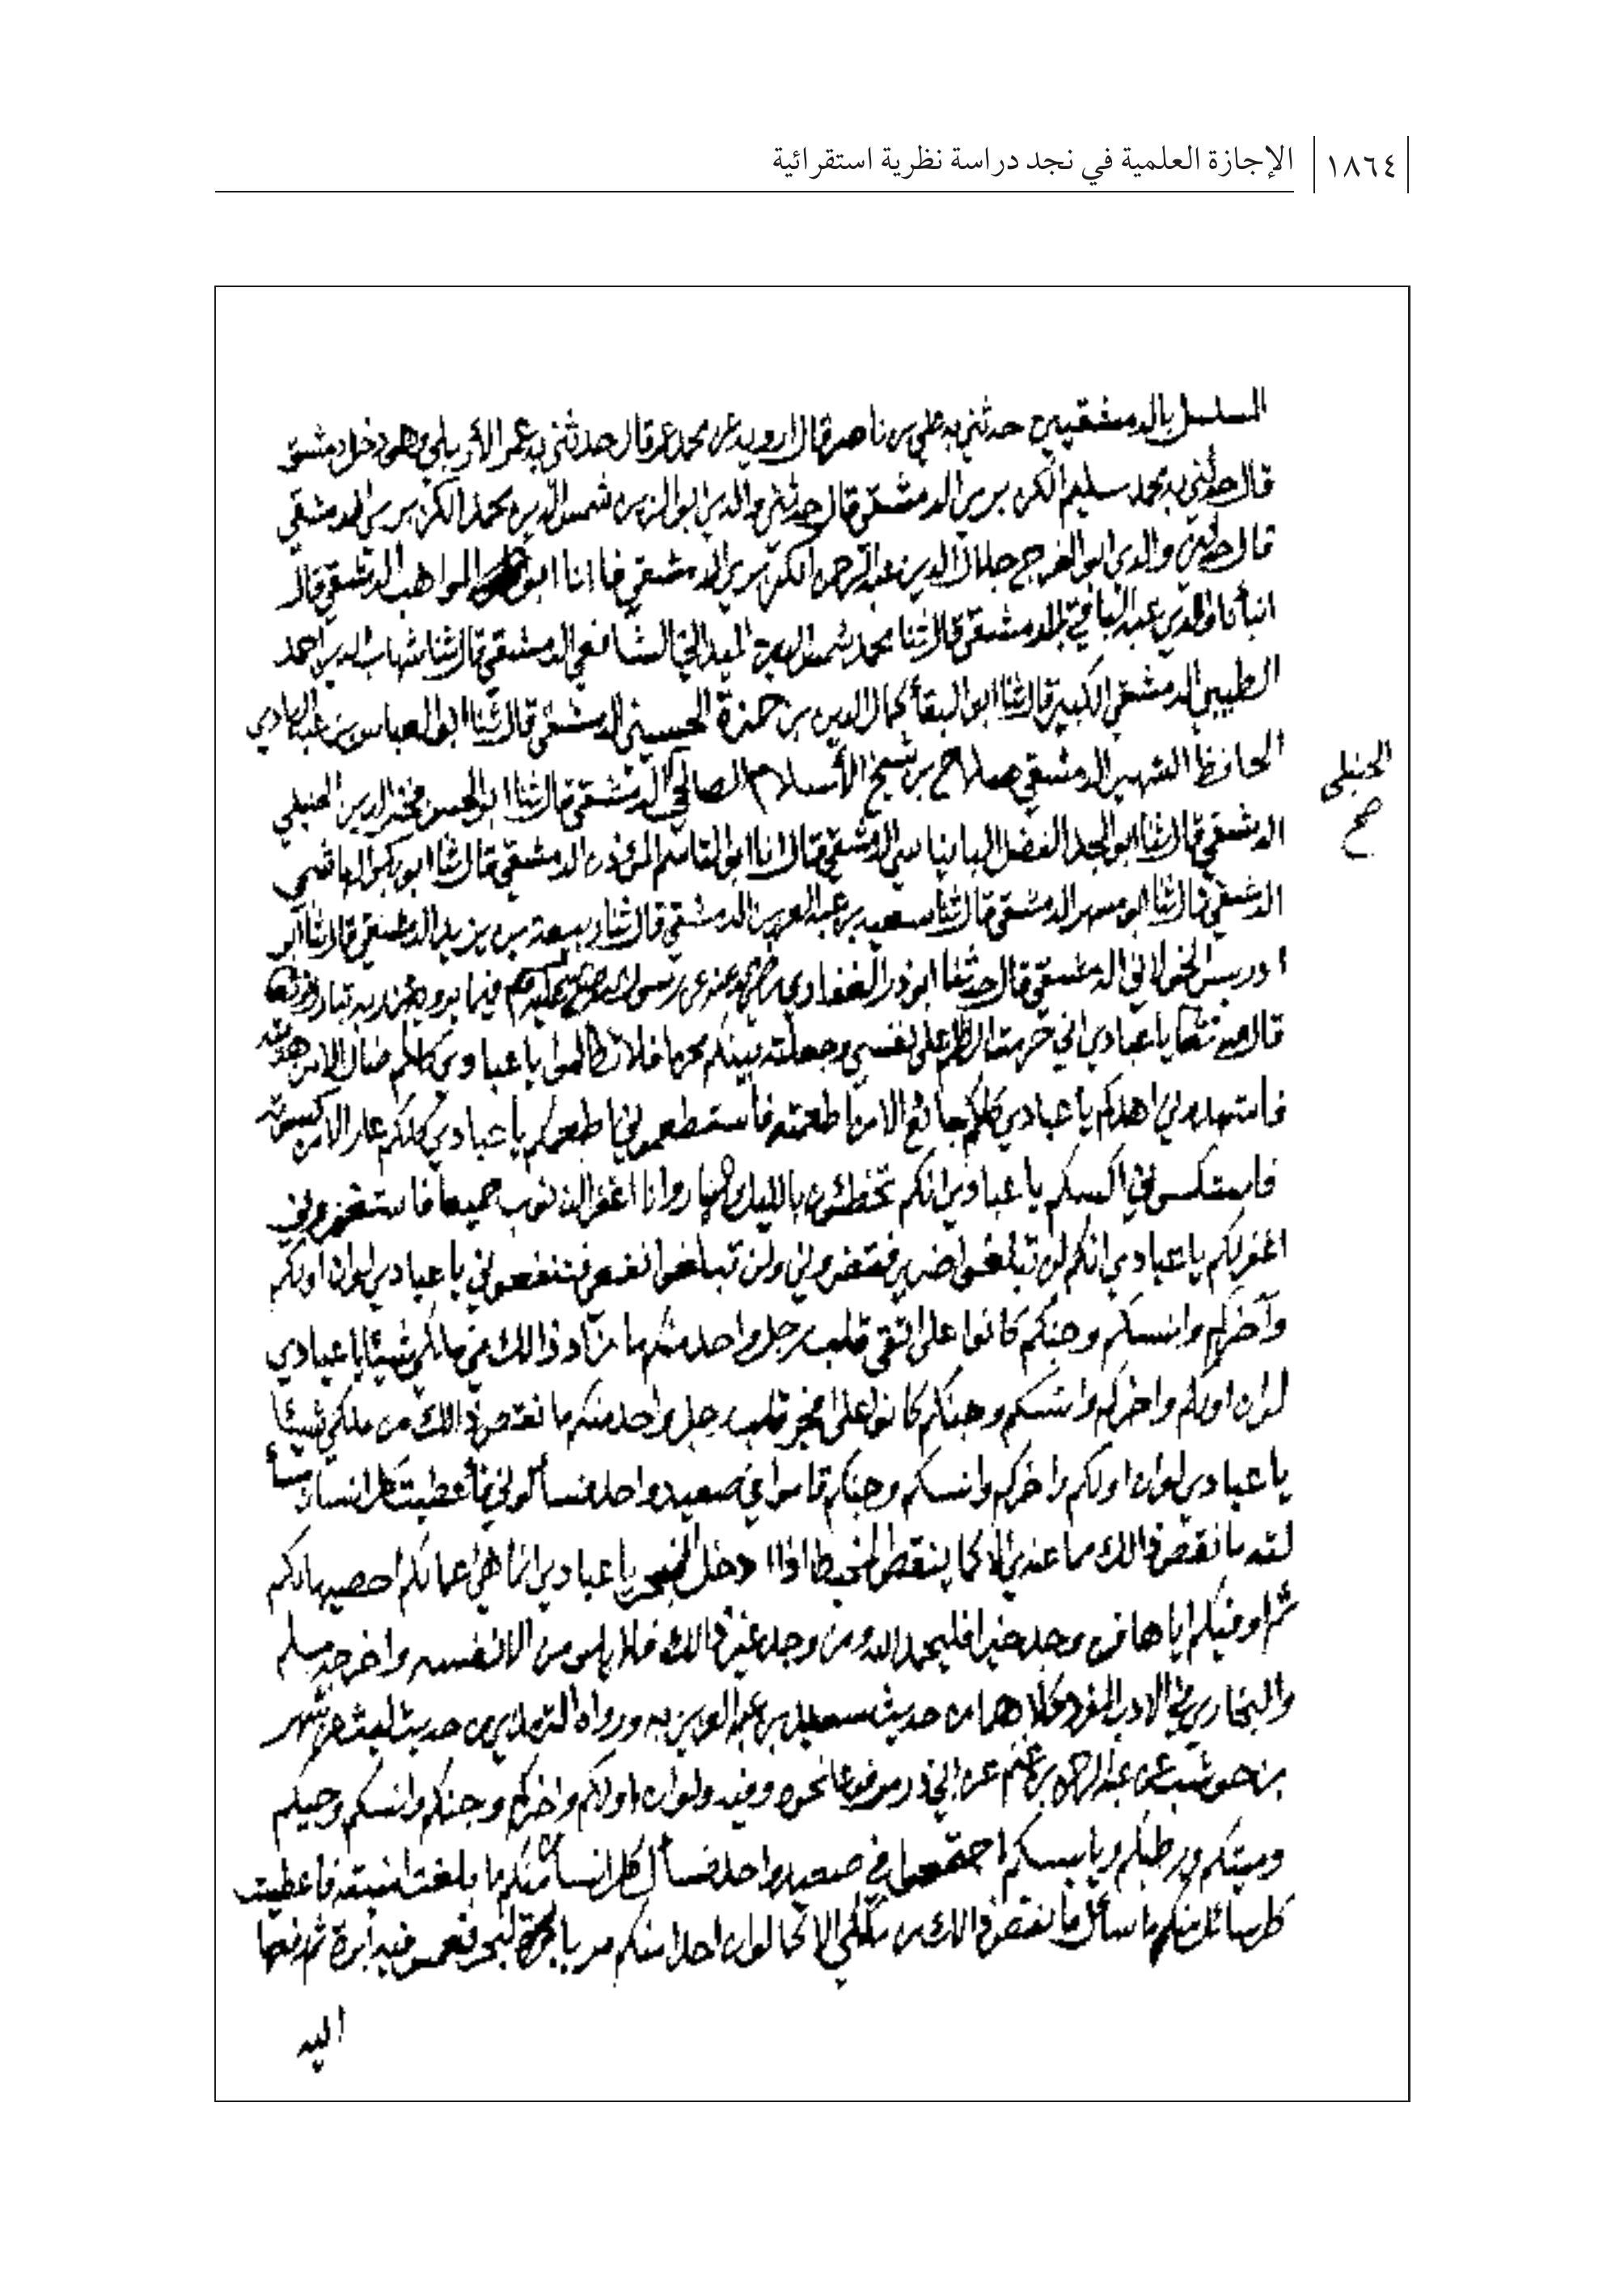 ١٨٦٤ الإجازة العلمية في نجد دراسة نظرية استقرائية
المسلسل بالدمشقيين حدثني به علي بن ناصر قال ارويه عن محمد عمر قال حدثني به عمر الأربلي وهو دخل دمشق
قال حدثني به محمد سليم الكزبري الدمشقي قال حدثني والدي ابوالز بن شمس الدين محمد الكزبري الدمشقي
قال حدثني والدي ابو الفرج جلال الدين عبد الرحمن الكزبري الدمشقي قا انا ابو المواهب الدمشقي قال
انبأنا والدي عبد الباقي الدمشقي قال ثنا محمد شمس الدين الميداني الشافعي الدمشقي قال ثنا شهاب الدين احمد
الطيبي الدمشقي الكبير قال ثنا ابو البقأ كمال الدين بن حمزة الحسيني الدمشقي قال ثنا ابو العباس بن عبد الهادي
الحنبلي
صح
الحافظ الشهير الدمشقي صلاح بن شيخ الأسلام الصالحي الدمشقي قال ثنا ابو الحسن فخر الدين الحنبلي
الدمشقي قال ثنا ابو المجد الفضل البانياسي الدمشقي قال انا ابو القاسم المؤذن الدمشقي قال ثنا ابو بكر الهاشمي
الدمشقي قال ثنا ابو مسهر الدمشقي قال ثنا سعيد بن عبد العزيز الدمشقي قال ثنا ربيعة بن يزيد الدمشقي قال ثنا ابو
ادريس الخولاني الدمشقي قال حدثنا ابو ذر الغفاري عن رسول الله فيما يرويه عن ربه تبارك
قال يا عبادي اني حرمت الظلم على نفسي وجعلته بينكم محرما فلا تظالموا يا عبادي كلكم ضال الا من هديته
فاستهدوني اهدكم يا عبادي كلكم جائع الا من اطعمته فاستطعموني اطعمكم يا عبادي كلكم عار الا من كسوته
فاستكسوني اكسكم يا عبادي انكم تخطئون بالليل والنهار وانا اغفر الذنوب جميعا فاستغفروني
اغفر لكم يا عبادي انكم لن تبلغوا ضري فتضروني ولن تبلغوا نفعي فتنفعوني يا عبادي لو ان اولكم
وآخركم وانسكم وجنكم كانوا على اتقى قلب رجل واحد منكم ما زاد ذالك في ملكي شيئا يا عبادي
لو ان اولكم واخركم وانسكم وجنكم كانوا على افجر قلب رجل واحد منكم ما نقص ذالك من ملكي شيئا
يا عبادي لو ان اولكم واخركم وانسكم وجنكم قاموا في صعيد واحد فسألوني فأعطيت كل انسان
ما نقص ذالك مما عندي الا كما ينقص المخيط اذا ادخل البحر يا عبادي انما هي اعمالكم احصيها لكم
ثم اوفيكم اياها فمن وجد خيرا فليحمد الله ومن وجد غير ذالك فلا يلومن الا نفسه واخرجه مسلم
والبخاري في الادب المفرد كلاهما من حديث سعيد بن عبد العزيز به ورواه الترمذي من حديث ليث عن شهر
بن حوشب عن عبد الرحمن بن غنم عن ابي ذر مرفوعا نحوه وفيه ولو ان اولكم واخركم وجنكم وانسكم وحيكم
وميتكم ورطبكم ويابسكم اجتمعوا في صعيد واحد فسأل كل انسان منكم ما بلغت امنيته فاعطيت
كل سائل منكم ما سأل ما نقص ذالك من ملكي الا كما لو ان احدا منكم مر بالبحر فغمس فيه ابرة ثم رفعها
اليه